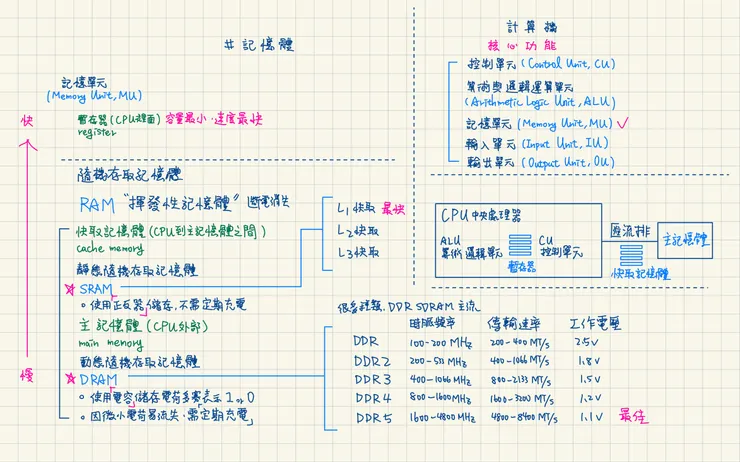 #記憶體
記憶單元
(Memory Unit, MU)
快
暫存器(CPU裡面) 容量最小、速度最快
register
隨機存取記憶體
RAM "揮發性記憶體" 斷電消失
快取記憶體(CPU到主記憶體之間)
cache memory
靜態隨機存取記憶體
SRAM
。使用「正反器」儲存,不需定期充電
主記憶體(CPU外部)
main memory
動態隨機存取記憶體
慢
DRAM
。使用「電容」儲存電荷多寡表示1or0
。因微小電荷易流失,「需定期充電」
L1快取 最快
L2快取
L3快取
計算機
核心功能
控制單元(Control Unit, CU)
算術與邏輯運算單元
(Arithmetic Logic Unit, ALU)
記憶單元(Memory Unit, MU)✓
輸入單元(Input Unit, IU)
輸出單元(Output Unit, OU)
CPU中央處理器
ALU
算術邏輯單元
CU
控制單元
暫存器
匯流排
快取記憶體
主記憶體
很多種類,DDR SDRAM主流
時脈頻率 傳輸速率 工作電壓
DDR 100-200 MHz 200-400 MT/s 2.5V
DDR2 200-533 MHz 400-1066 MT/s 1.8V
DDR3 400-1066 MHz 800-2133 MT/s 1.5V
DDR4 800-1600 MHz 1600-3200 MT/s 1.2V
DDR5 1600-4800 MHz 4800-8400 MT/s 1.1V 最佳